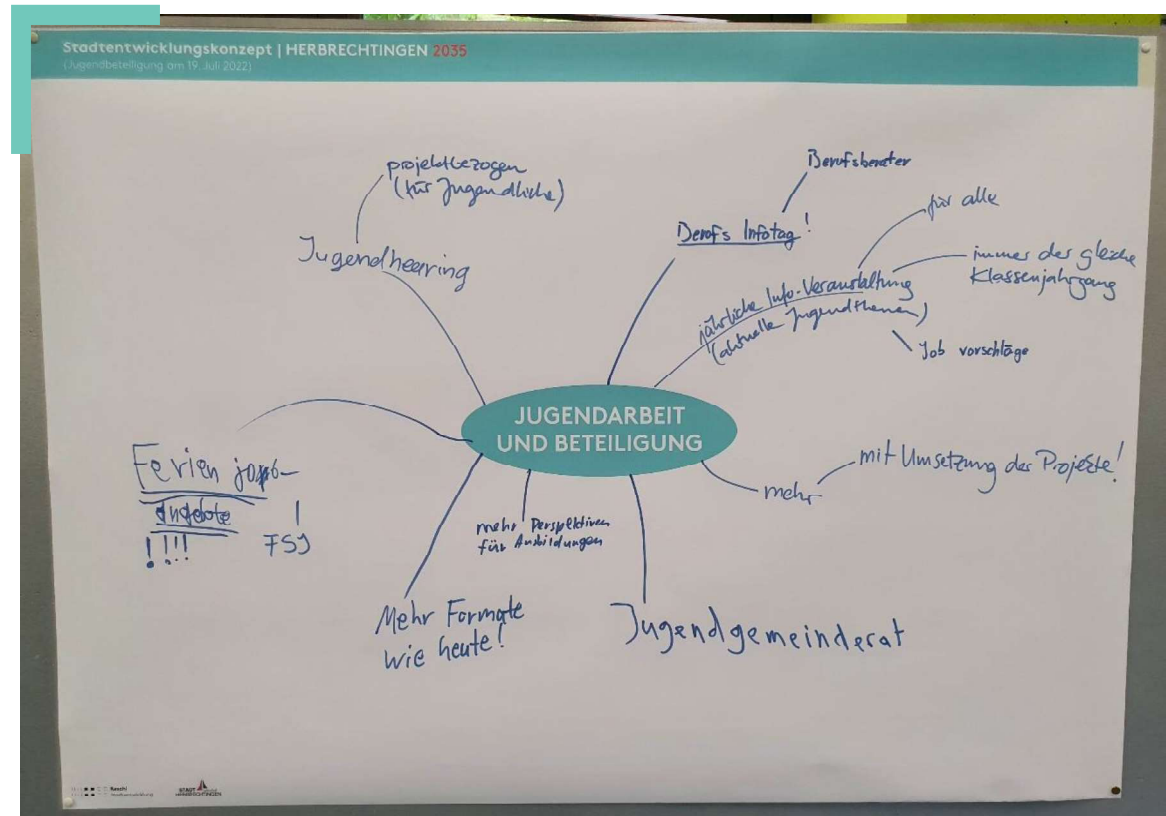 Stadtentwicklungskonzept | HERBRECHTINGEN 2035
(Jugendbeteiligung am 19. Juli 2022)
projektbezogen
(für Jugendliche)
Jugendhearing
Berufsberater
Berufs Infotag!
für alle
immer der gleiche
Klassenjahrgang
jährliche Info-Veranstaltung
(aktuelle Jugendthemen)
Job vorschläge
JUGENDARBEIT
UND BETEILIGUNG
mit Umsetzung der Projekte!
mehr
Ferien job-
angebote
!!!!
FSJ
mehr Perspektiven
für Ausbildungen
Mehr Formate
wie heute!
Jugendgemeinderat
STADT
HERBRECHTINGEN